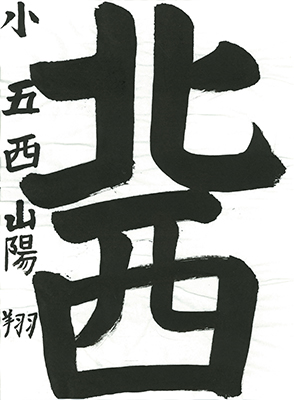 北西
小五西山陽翔